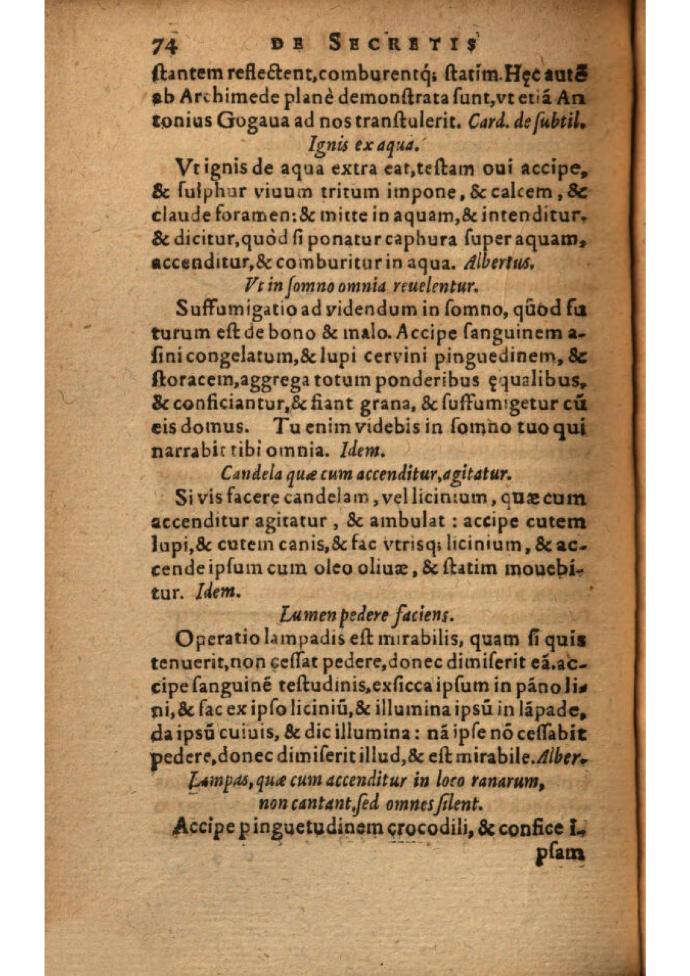 74 DE SECRETIS
ſtantem reflectent,comburentq́; ſtatim. Hęc autē
ab Archimede planè demonſtrata ſunt,vt etiā An
tonius Gogaua ad nos tranſtulerit. Card. de ſubtil.
Ignis ex aqua.
Vt ignis de aqua extra eat,teſtam oui accipe,
& ſulphur viuum tritum impone, & calcem, &
claude foramen: & mitte in aquam,& intenditur.
& dicitur,quòd ſi ponatur caphura ſuper aquam,
accenditur,& comburitur in aqua. Albertus.
Vt in ſomno omnia reuelentur.
Suffumigatio ad videndum in ſomno, quòd fu
turum eſt de bono & malo. Accipe ſanguinem a-
ſini congelatum,& lupi cervini pinguedinem, &
ſtoracem,aggrega totum ponderibus ęqualibus,
& conficiantur,& fiant grana, & ſuffumigetur cū
eis domus. Tu enim videbis in ſomno tuo qui
narrabit tibi omnia. Idem.
Candela quæ cum accenditur,agitatur.
Si vis facere candelam, vel licinium, quæ cum
accenditur agitatur, & ambulat: accipe cutem
lupi,& cutem canis,& fac vtriſq; licinium, & ac-
cende ipſum cum oleo oliuæ, & ſtatim mouebi-
tur. Idem.
Lumen pedere faciens.
Operatio lampadis eſt mirabilis, quam ſi quis
tenuerit,non ceſſat pedere,donec dimiſerit eā.ac-
cipe ſanguinē teſtudinis,exſicca ipſum in pāno li-
ni,& fac ex ipſo liciniū,& illumina ipſū in lāpade,
da ipſū cuiuis, & dic illumina: nā ipſe nō ceſſabit
pedere,donec dimiſerit illud,& eſt mirabile. Alber.
Lampas, quæ cum accenditur in loco ranarum,
non cantant,ſed omnes ſilent.
Accipe pinguetudinem crocodili, & confice i-
pſam